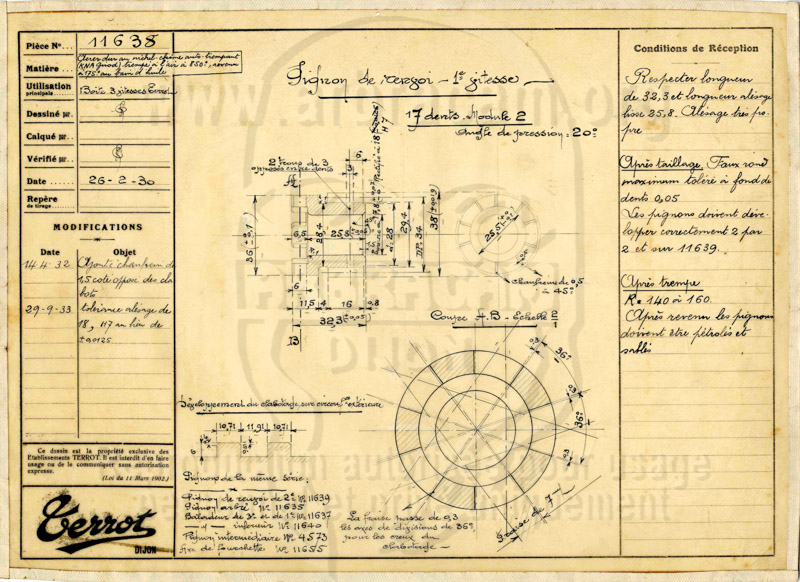 Pièce Nº... 11638
Matière... Acier dur au nichel-chrome auto-trempant
KNA Gnôd) trempé à l'air à 850º, revenu
à 175º au bain d'huile
Utilisation
principale... Boîte 3 vitesses Terrot
Dessiné par
Calqué par
Vérifié par
Date... 26-2-30
Repère
de tirage
MODIFICATIONS
Date Objet
14.4.32 Ajouté chanfrein de
1,5 coté opposé des cla
bots
29-9-33 tolérance alésage de
18, H7 au lieu de
±0,0125
Ce dessin est la propriété exclusive des
Etablissements TERROT. Il est interdit d'en faire
usage ou de le communiquer sans autorisation
expresse.
(Loi du 11 Mars 1902.)
Terrot
DIJON
Pignon de renvoi - 1e vitesse
17 dents. Module 2
Angle de pression = 20º
2 trous de 3
opposés entre dents
A
6
H7
36 ±0,1
6,5
28,4
25,8
17,8
d. 28
29,4
DP. 34
38 (±0,019)
25,5
chanfreine de 0,5
à 45º
6
11,5 4 16 0,8
32,3 (±0,05)
B
Coupe A.B - Echelle 2/1
0,3
36º
0,3
36º
0,3
Développement du clabotage sur circonf. extérieure
10,71 11,91 10,71
6
Pignons de la même série:
Pignon de renvoi de 2e Nº 11639
Pignon arbré Nº 11635
Baladeur de 3e et de 1e Nº 11637
-"- inférieur Nº 11640
Pignon intermédiaire Nº 4573
Axe de fourchette Nº 11655
La fraise passe de 0,3
les axes de divisions de 36º
pour les creux du
clabotage -
Fraise de 7
Conditions de Réception
Respecter longueur
de 32,3 et longueur alésage
lisse 25,8. Alésage très pro-
pre.
Après taillage. Faux rond
maximum toléré à fond de
dents 0,05
Les pignons doivent déve-
lopper correctement 2 par
2 et sur 11639.
Après trempe
R = 140 à 160.
Après revenu les pignons
doivent être pétrolés et
sablés